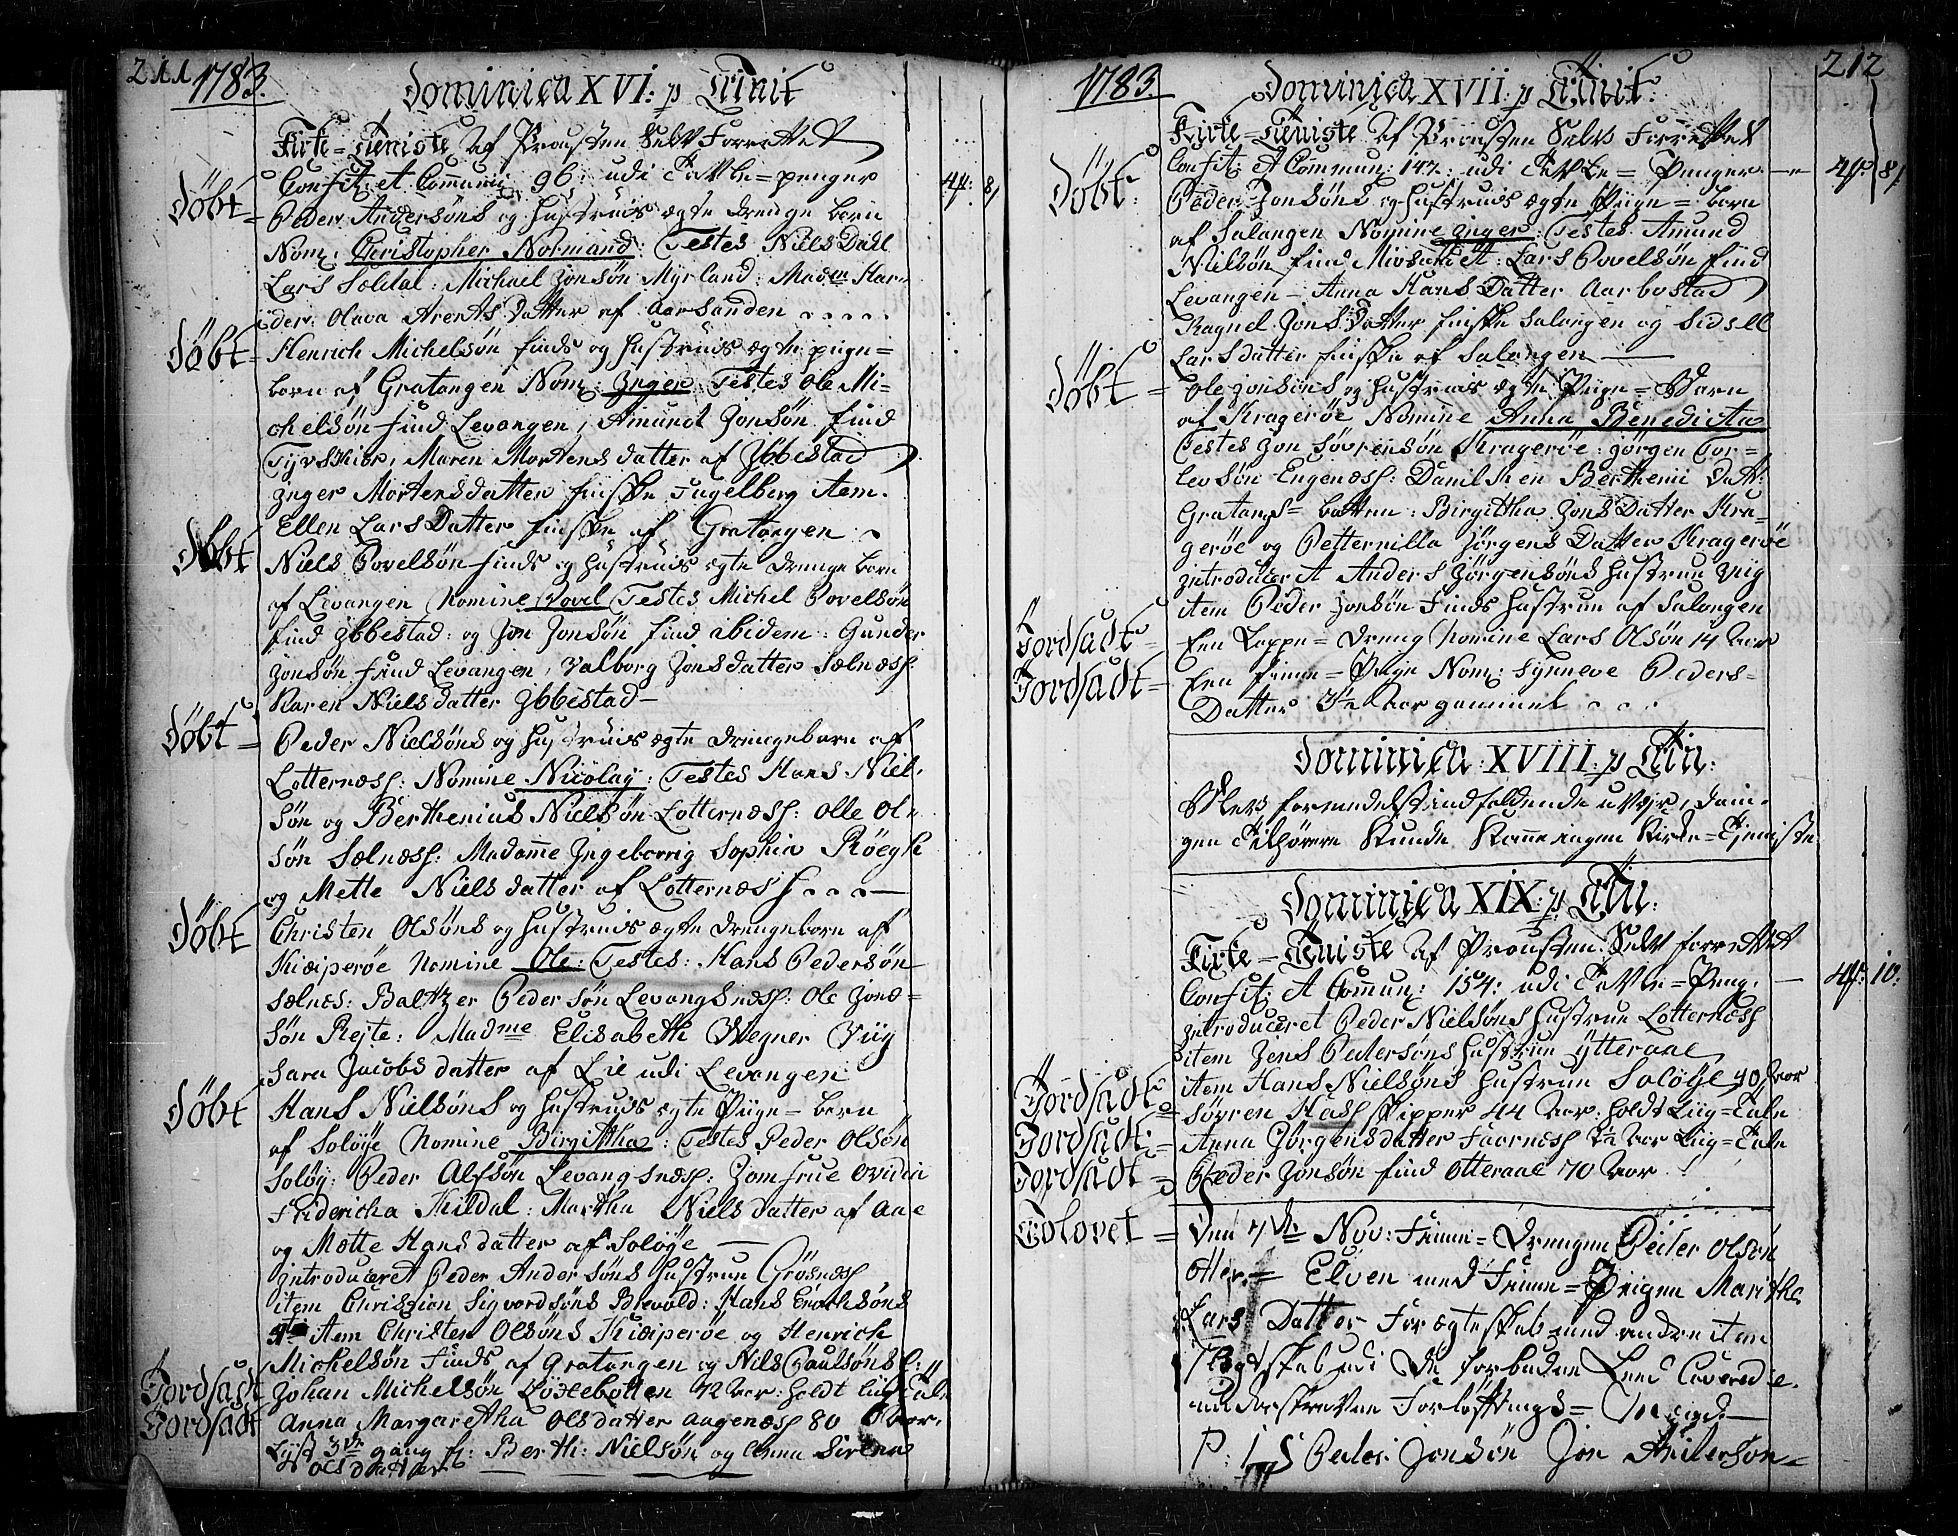 211 1783. Dominica XVI: p Trinit
Kirke=Tieniste af Prousten Selv Forrettet
Confit: et Communi: 96: udi Tavle=penger 4 8
Döbt= Peder Andersöns og Hustrues ægte drenge barn
Nom: Christopher Normand: Testes Niels Dahl
Lars Sældal: Michael Jonsön Myrland: Madm Har
der: Olava Arents Datter af Aarsanden
Döbt= Henrich Michelsön finds og Hustrues ægte pige=
barn af Gratangen Nom: Inger: Testes Ole Mi=
chelsön find Levangen, Amund Jonsön find
Maren Mortens datter af Ibbestad
Inger Mortensdatter finske Fugelberg item.
Ellen Lars Datter finske af Gratangen
Döbt Niels Povelsön finds og Hustrues ægte drenge barn
af Levangen Nomine Povel Testes Michel Povelsön
find Ibbestad: og Jon Jonsön find ibidem: Gunder
Jonsön find Levangen, Valborg Jonsdatter Sælnæss
Karen Niels datter Ibbestad—
Döbt= Peder Nielsöns og Hustrues ægte drengebarn af
Lotternæss: Nomine Nicolay: Testes Hans Niel-
sön og Berthenius Nielsön Lotternæss: Olle Ol=
sön Sælnæss: Madamme Ingeborrig Sophia Röegh
og Mette Niels datter af Lotternæss
Döbt Christen Olsöns og Hustrues ægte drengebarn af
Kiæiperöe Nomine Ole: Testes: Hans Pedersön
Sælnes: Baltzer Peder sön Levangsnæss: Ole Jons=
sön Rejte: Madme Elisabeth Wegner Viig
Sara Jacobs datter af Lie udi Levangen
Döbt Hans Nielsöns og Hustrues ægte Piige=barn
af Solöye Nomine Birgitha: Testes Peder Olsön
Solöy: Peder Alfsön Levangsnæss: Jomfrue Ovidia
Fridericha Kildal: Martha Niels datter af Aae
og Mætte Hans datter af Solöye—
Introduceret Peder Andersöns Hustrue Grösnæss
item Christian Sigvordsöns Brevold: Hans Enochsöns
item Christen Olsöns Kiæiperöe og Henrich
Michelsön Finds af Gratangen og Nils Paulsöns
Jordsadt Johan Michelsön Löxebotten 72 Aar: holdt liig Tale
Jordsadt Anna Margaretha Olsdatter Aagenæss 80 Aar.
Lyst 3die gang f: Berth: Nielsön og Anna Sirena
Olsdatter
1783. Dominica XVII: p Trinit: 212
Kirke=Tieniste af Prousten Selv Forrettet
Confit: et Commun: 142: udi Tavle=Penger— 4 8
Döbt: Peder Jonsöns og Hustrues ægte Piige=barn
af Salangen Nomine Inger: Testes Amund
Nielsön find: Lars Povelsön find
Levangen— Anna Hans Datter Aarbostad
Ragnel Jons Datter finske Salangen og Sidsell
Lars datter finske af Salangen
Döbt= Ole Jonsöns og Hustrues ægte Piige=Barn
af Kragerøe Nomine Anna Benedicta
Testes Jon Sövrensön Kragerøe: Jörgen Tor=
levsön Engenæss: Daniel Berthemi Datt:
Gratangs=botten: Birgitha Jons Datter Kra=
gerøe og Petternilla Jörgens Datter Kragerøe
Introducert Anders Jörgensöns Hustrue Viig
item Peder Jonsön Finds Hustrue af Salangen
Jordsadt Een Lappe=Dreng Nomine Lars Olsön 14 Aar
Jordsadt= Een finne=Piige Nom: Synneve Peders=
Datter 3½ Aar gammel
Dominica XVIII: p Trin:
Blev formedelst indfaldende uVejr, da in-
gen Tilhörere kunde komme ingen Kirke=Tieniste
Dominica XIX: p Trin:
Kirke=Tieniste af Prousten Selv forrettet
Confit: et Commun: 154: udi Tavle=Peng: — 4 10:
Introduceret Peder Nielsöns Hustrue Lotternæss
item Jens Pedersöns Hustrue Ytteraae
Jordsadt item Hans Nielsöns Hustrue Solöye 40 Aar
Jordsadt= Sövren Hass skipper 44 Aar: holdt Liig=Tale
Jordsadt= Anna Jörgensdatter Faarnæss ½ Aar Liig=Tale
Peder Jonsön find Otteraae 70 Aar
Trolovet= Den 7de Nov: Finne=Drengen Peder Olsen
Otter=Elven med Finne=Piigen Maritha
Lars Datter For ægteskab med andre item
skab udi de forbudne Leed Caverede
underskrevne Forlöftnings=Mænd—
P: I S Peder Jonsön Jon Andersön=